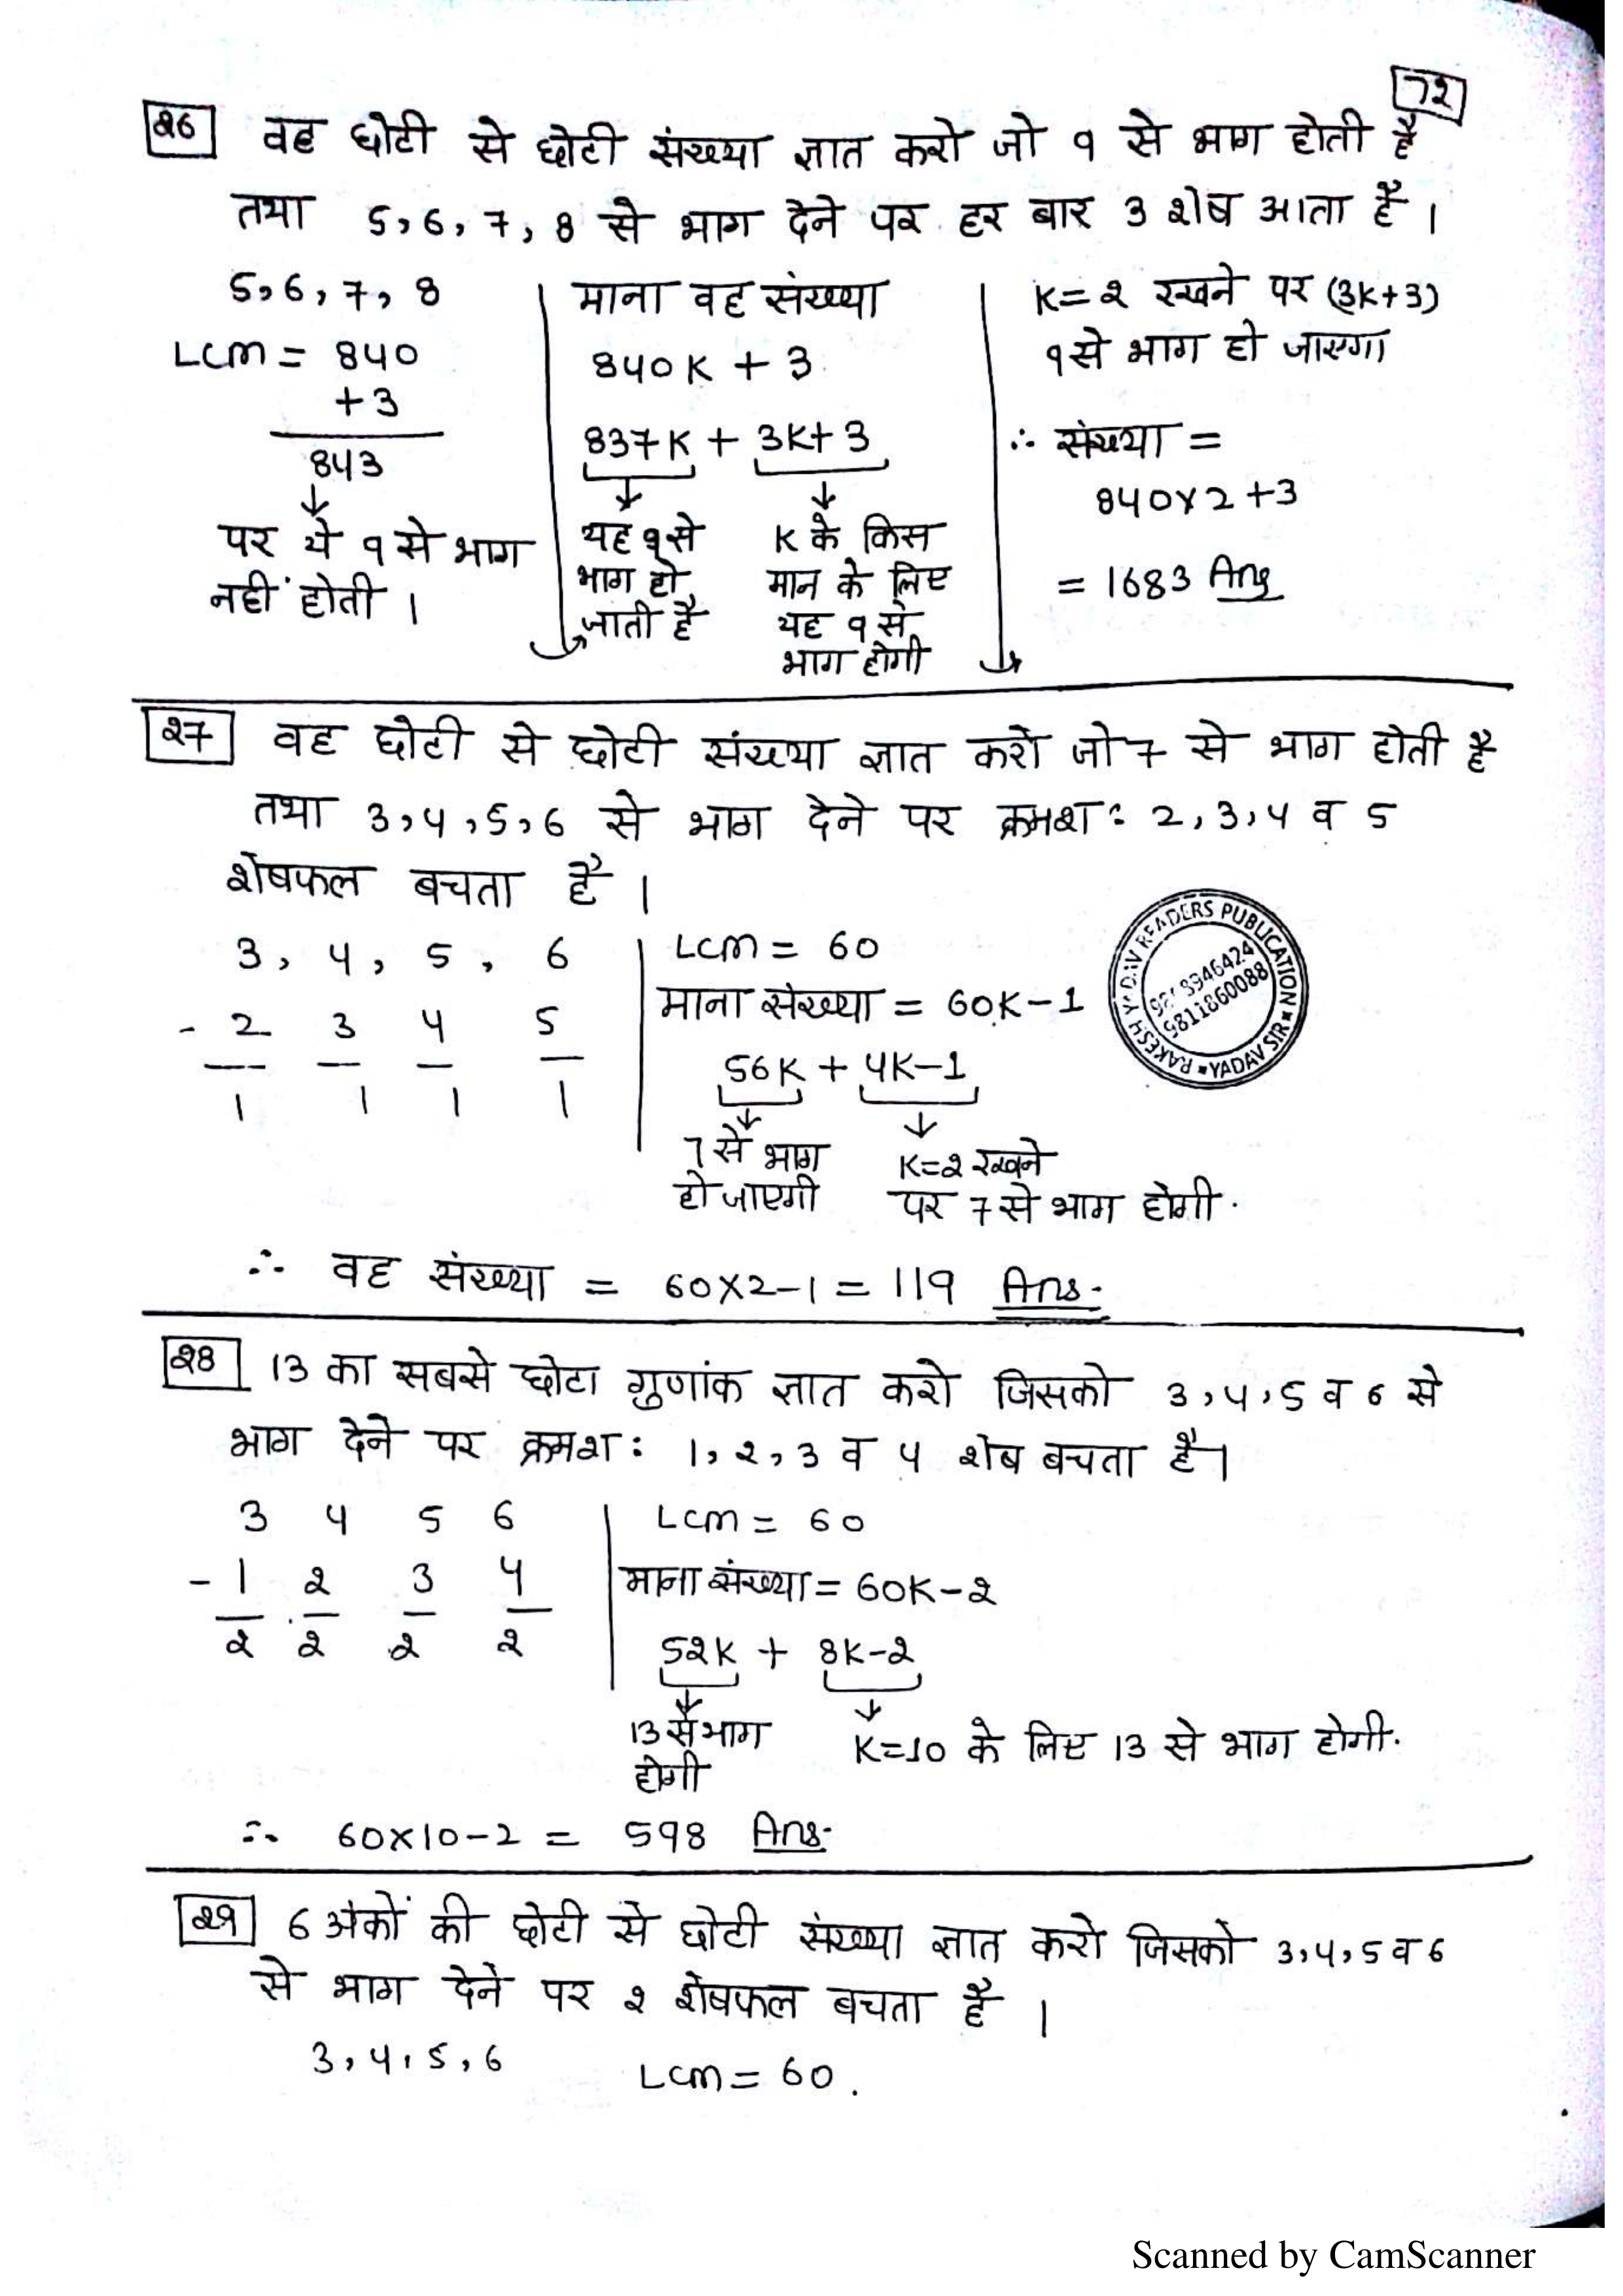 72
26 वह छोटी से छोटी संख्या ज्ञात करो जो 9 से भाग होती है
तथा 5, 6, 7, 8 से भाग देने पर हर बार 3 शेष आता है।
5, 6, 7, 8
LCM = 840
+3
843
↓
पर ये 9 से भाग
नहीं होती।
माना वह संख्या
840K + 3
837K + 3K+3
↓ ↓
यह 9 से
भाग हो
जाती है
K के किस
मान के लिए
यह 9 से
भाग होगी
K=2 रखने पर (3K+3)
9 से भाग हो जाएगा
∴ संख्या =
840×2+3
= 1683 Ans
27 वह छोटी से छोटी संख्या ज्ञात करो जो 7 से भाग होती है
तथा 3, 4, 5, 6 से भाग देने पर क्रमश: 2, 3, 4 व 5
शेषफल बचता है।
3, 4, 5, 6
- 2 3 4 5
1 1 1 1
LCM = 60
माना संख्या = 60K-1
56K + 4K-1
↓ ↓
7 से भाग
हो जाएगी
K=2 रखने
पर 7 से भाग होगी.
RAKESH YADAV READERS PUBLICATION
YADAV SIR
9811860088
∴ वह संख्या = 60×2-1 = 119 Ans.
28 13 का सबसे छोटा गुणांक ज्ञात करो जिसको 3, 4, 5 व 6 से
भाग देने पर क्रमश: 1, 2, 3 व 4 शेष बचता है।
3 4 5 6
- 1 2 3 4
2 2 2 2
LCM = 60
माना संख्या = 60K-2
52K + 8K-2
↓ ↓
13 से भाग
होगी
K=10 के लिए 13 से भाग होगी.
∴ 60×10-2 = 598 Ans.
29 6 अंकों की छोटी से छोटी संख्या ज्ञात करो जिसको 3, 4, 5 व 6
से भाग देने पर 2 शेषफल बचता है।
3, 4, 5, 6 LCM = 60.
Scanned by CamScanner